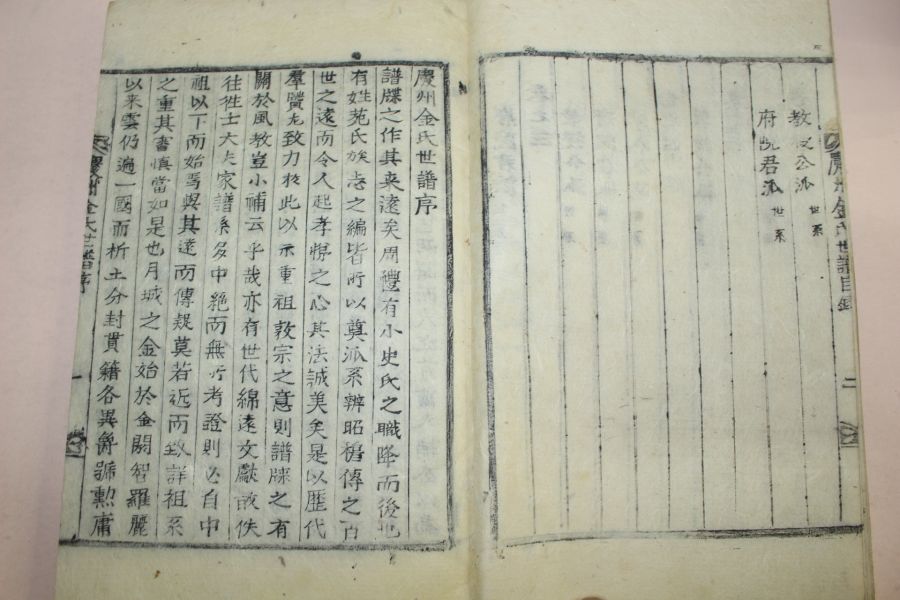 教授公派 世系
府院君派 世系
慶州金氏世譜目錄
二
慶州金氏世譜序
譜牒之作其来遠矣周禮有小史氏之職降而後也
有姓苑氏族志之編皆所以奠派系辨昭穆傳之百
世之遠而令人起孝悌之心其法誠美矣是以歷代
羣賢尤致力於此以示重祖敦宗之意則譜牒之有
關於風教豈小補云乎哉亦有世代綿遠文獻散佚
往往士大夫家譜系多中絶而無所考證則必自中
祖以下而始焉與其遠而傳疑莫若近而致詳祖系
之重其審慎當如是也月城之金始於金閼智羅麗
以来雲仍遍一國而析土分封貫籍各異爵號勲庸
慶州金氏世譜序
一